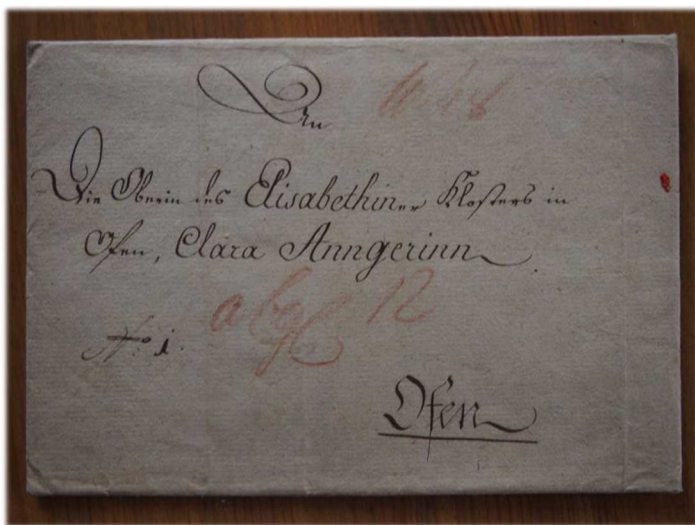 An
Die Oberin des Elisabethiner Klosters in
Ofen, Clara Anngerinn
12
No. 1.
Ofen